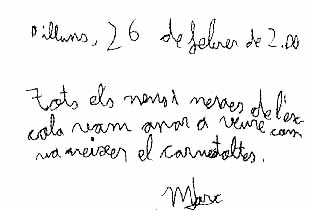 Dilluns, 26 de febrer de 2.00
Tots els nens i nenes de l'es
cola vam anar a veure com
va neixer el carnestoltes.
Marc